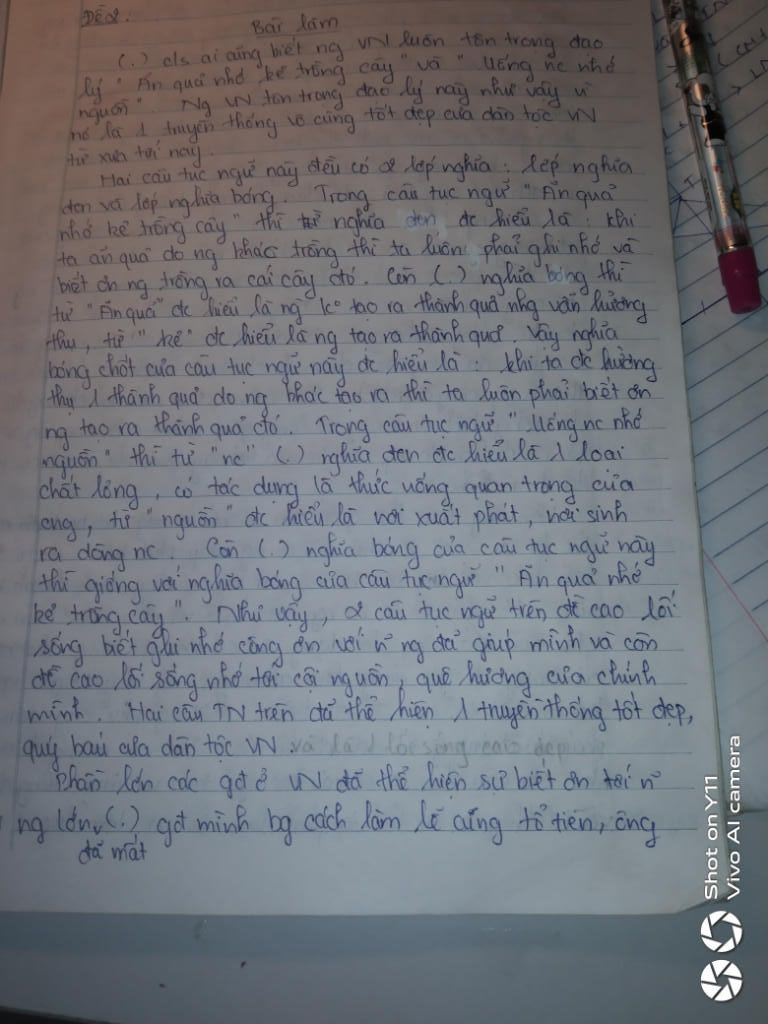 Đề 2:
Bài làm
(.) c/s ai cũng biết ng VN luôn tôn trọng đạo
lý "Ăn quả nhớ kẻ trồng cây" và "Uống nc nhớ
nguồn". Ng VN tôn trọng đạo lý này như vậy vì
nó là 1 truyền thống vô cùng tốt đẹp của dân tộc VN
từ xưa tới nay.
Hai câu tục ngữ này đều có 2 lớp nghĩa: lớp nghĩa
đen và lớp nghĩa bóng. Trong câu tục ngữ "Ăn quả
nhớ kẻ trồng cây" thì nghĩa đen đc hiểu là: khi
ta ăn quả do ng khác trồng thì ta luôn phải ghi nhớ và
biết ơn ng trồng ra cái cây đó. Còn (.) nghĩa bóng thì
từ "Ăn quả" đc hiểu là ng ko tạo ra thành quả nhg vẫn hưởng
thụ, từ "kẻ" đc hiểu là ng tạo ra thành quả. Vậy nghĩa
bóng chốt của câu tục ngữ này đc hiểu là: khi ta đc hưởng
thụ 1 thành quả do ng khác tạo ra thì ta luôn phải biết ơn
ng tạo ra thành quả đó. Trong câu tục ngữ "Uống nc nhớ
nguồn" thì từ "nc" (.) nghĩa đen đc hiểu là 1 loại
chất lỏng, có tác dụng là thức uống quan trọng của
cng, từ "nguồn" đc hiểu là nơi xuất phát, nơi sinh
ra dòng nc. Còn (.) nghĩa bóng của câu tục ngữ này
thì giống với nghĩa bóng của câu tục ngữ "Ăn quả nhớ
kẻ trồng cây". Như vậy, 2 câu tục ngữ trên đề cao lối
sống biết ghi nhớ công ơn với n~ ng đã giúp mình và còn
đề cao lối sống nhớ tới cội nguồn, quê hương của chính
mình. Hai câu TN trên đã thể hiện 1 truyền thống tốt đẹp,
quý báu của dân tộc VN và là 1 lối sống cao đẹp
Phần lớn các gđ ở VN đã thể hiện sự biết ơn tới n~
ng lớn (.) gđ mình bg cách làm lễ cúng tổ tiên, ông
đã mất
Shot on Y11
Vivo AI camera